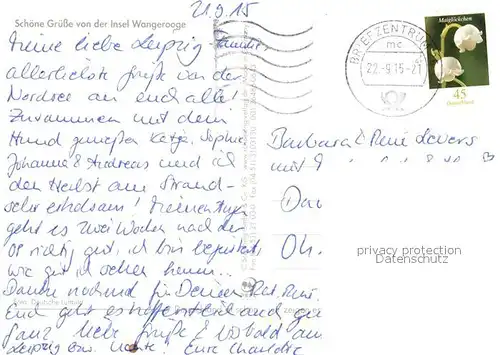 Schöne Grüße von der Insel Wangerooge
21.9.15
Meine liebe Leipzig-Familie,
allerliebste Grüße von der
Nordsee an euch alle!
Zusammen mit dem
Hund genießen Katja, Sophie,
Johanna & Andreas und ich
den Herbst am Strand –
sehr erholsam! Meinen Augen
geht es zwei Wochen nach der
OP richtig gut, ich bin begeistert
wie gut ich sehen kann..
Danke nochmal für Deinen Rat, René.
Euch geht es hoffentlich auch
ganz liebe Grüße & bis bald
Leipzig Eure Charlotte
BRIEFZENTRUM
mc
22.-9.15-21
Maiglöckchen
45
Deutschland
Barbara & René
mit
Da
Oh.
privacy protection
Datenschutz